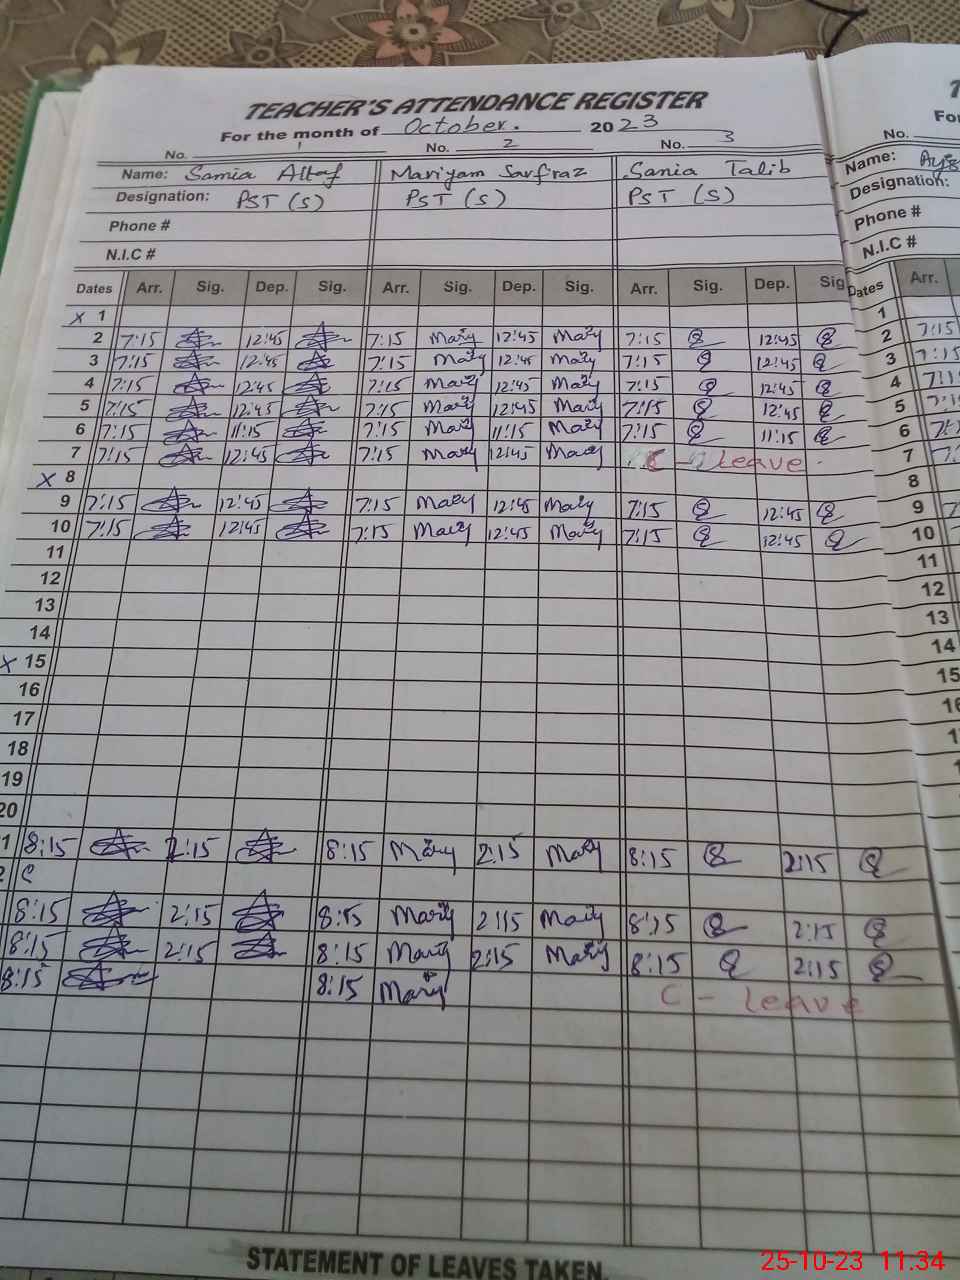 TEACHER'S ATTENDANCE REGISTER
For the month of October. 2023
No. 1 No. 2 No. 3
Name: Samia Altaf Mariyam Sarfraz Sania Talib
Designation: PST (S) PST (S) PST (S)
Phone #
N.I.C #
Dates Arr. Sig. Dep. Sig. Arr. Sig. Dep. Sig. Arr. Sig. Dep. Sig
x 1
2 7:15 12:45 7:15 Mary 12:45 Mary 7:15 12:45
3 7:15 12:45 7:15 Mary 12:45 Mary 7:15 12:45
4 7:15 12:45 7:15 Mary 12:45 Mary 7:15 12:45
5 7:15 12:45 7:15 Mary 12:45 Mary 7:15 12:45
6 7:15 11:15 7:15 Mary 11:15 Mary 7:15 11:15
7 7:15 12:45 7:15 Mary 12:45 Mary C - Leave.
x 8
9 7:15 12:45 7:15 Mary 12:45 Mary 7:15 12:45
10 7:15 12:45 7:15 Mary 12:45 Mary 7:15 12:45
11
12
13
14
x 15
16
17
18
19
20
1 8:15 2:15 8:15 Mary 2:15 Mary 8:15 2:15
2
8:15 2:15 8:15 Mary 2:15 Mary 8:15 2:15
8:15 2:15 8:15 Mary 2:15 Mary 8:15 2:15
8:15 8:15 Mary C - Leave
STATEMENT OF LEAVES TAKEN.
For
No.
Name:
Designation:
Phone #
N.I.C #
Dates Arr.
1
2 7:15
3 7:15
4
5
6
7
8
9
10
11
12
13
14
15
25-10-23 11:34